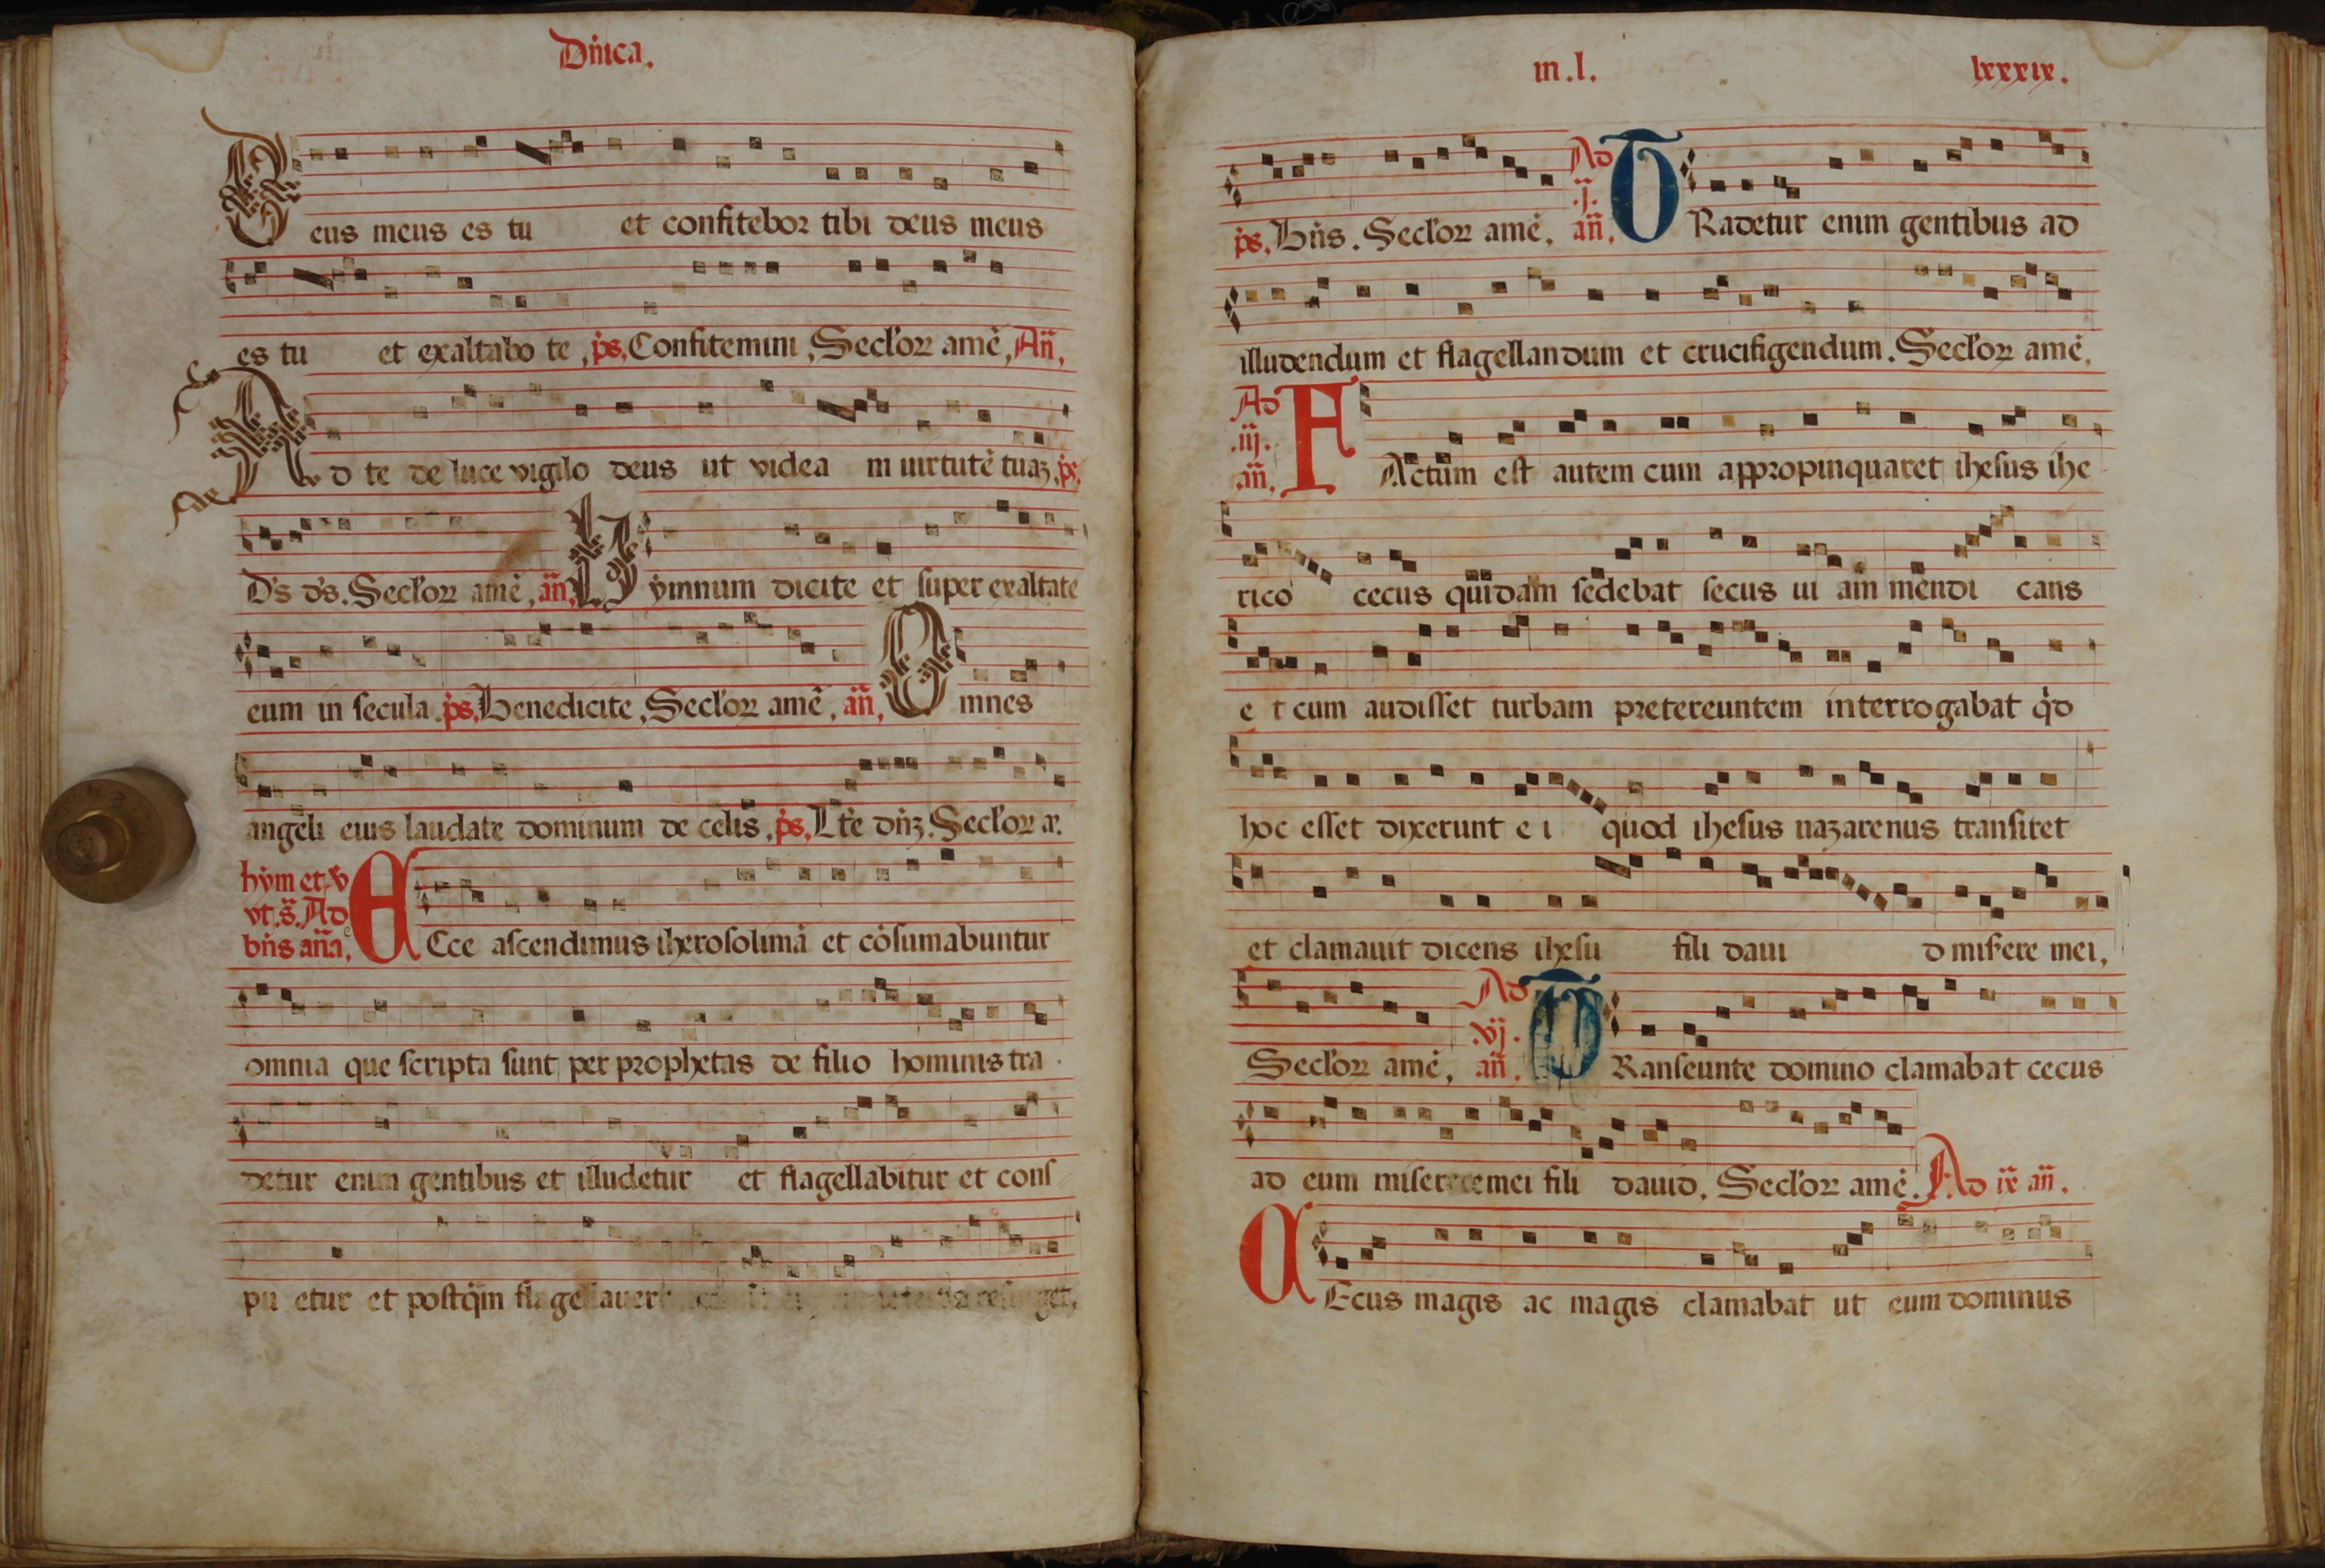 Dñica.
Deus meus es tu et confitebor tibi deus meus
es tu et exaltabo te, ps, Confitemini, Seclor amē, Añ,
Ad te de luce vigilo deus ut videam uirtutē tuaz, ps,
D's d's. Seclor amē, añ, Hymnum dicite et super exaltate
eum in secula, ps, Benedicite, Seclor amē, añ, Omnes
angeli eius laudate dominum de celis, ps, Lte dñz. Seclor a.
hym et v
vt. s. Ad
bñs aña, Ecce ascendimus iherosolimā et cōsumabuntur
omnia que scripta sunt per prophetas de filio hominis tra
detur enim gentibus et illudetur et flagellabitur et cons
pu etur et postq̄m flagellauer
in .l. lxxxix.
ps, Bñs. Seclor amē, Ad .j. añ, TRadetur enim gentibus ad
illudendum et flagellandum et crucifigendum. Seclor amē,
Ad .iij. añ, FActum est autem cum appropinquaret ihesus ihe
rico cecus quidam sedebat secus ui am mendi cans
e t cum audisset turbam pretereuntem interrogabat qd
hoc esset dixerunt e i quod ihesus nazarenus transiret
et clamauit dicens ihesu fili daui d misere mei,
Seclor amē, Ad .vj. añ. TRanseunte domino clamabat cecus
ad eum miserere mei fili dauid, Seclor amē. Ad ix añ.
CEcus magis ac magis clamabat ut eum dominus